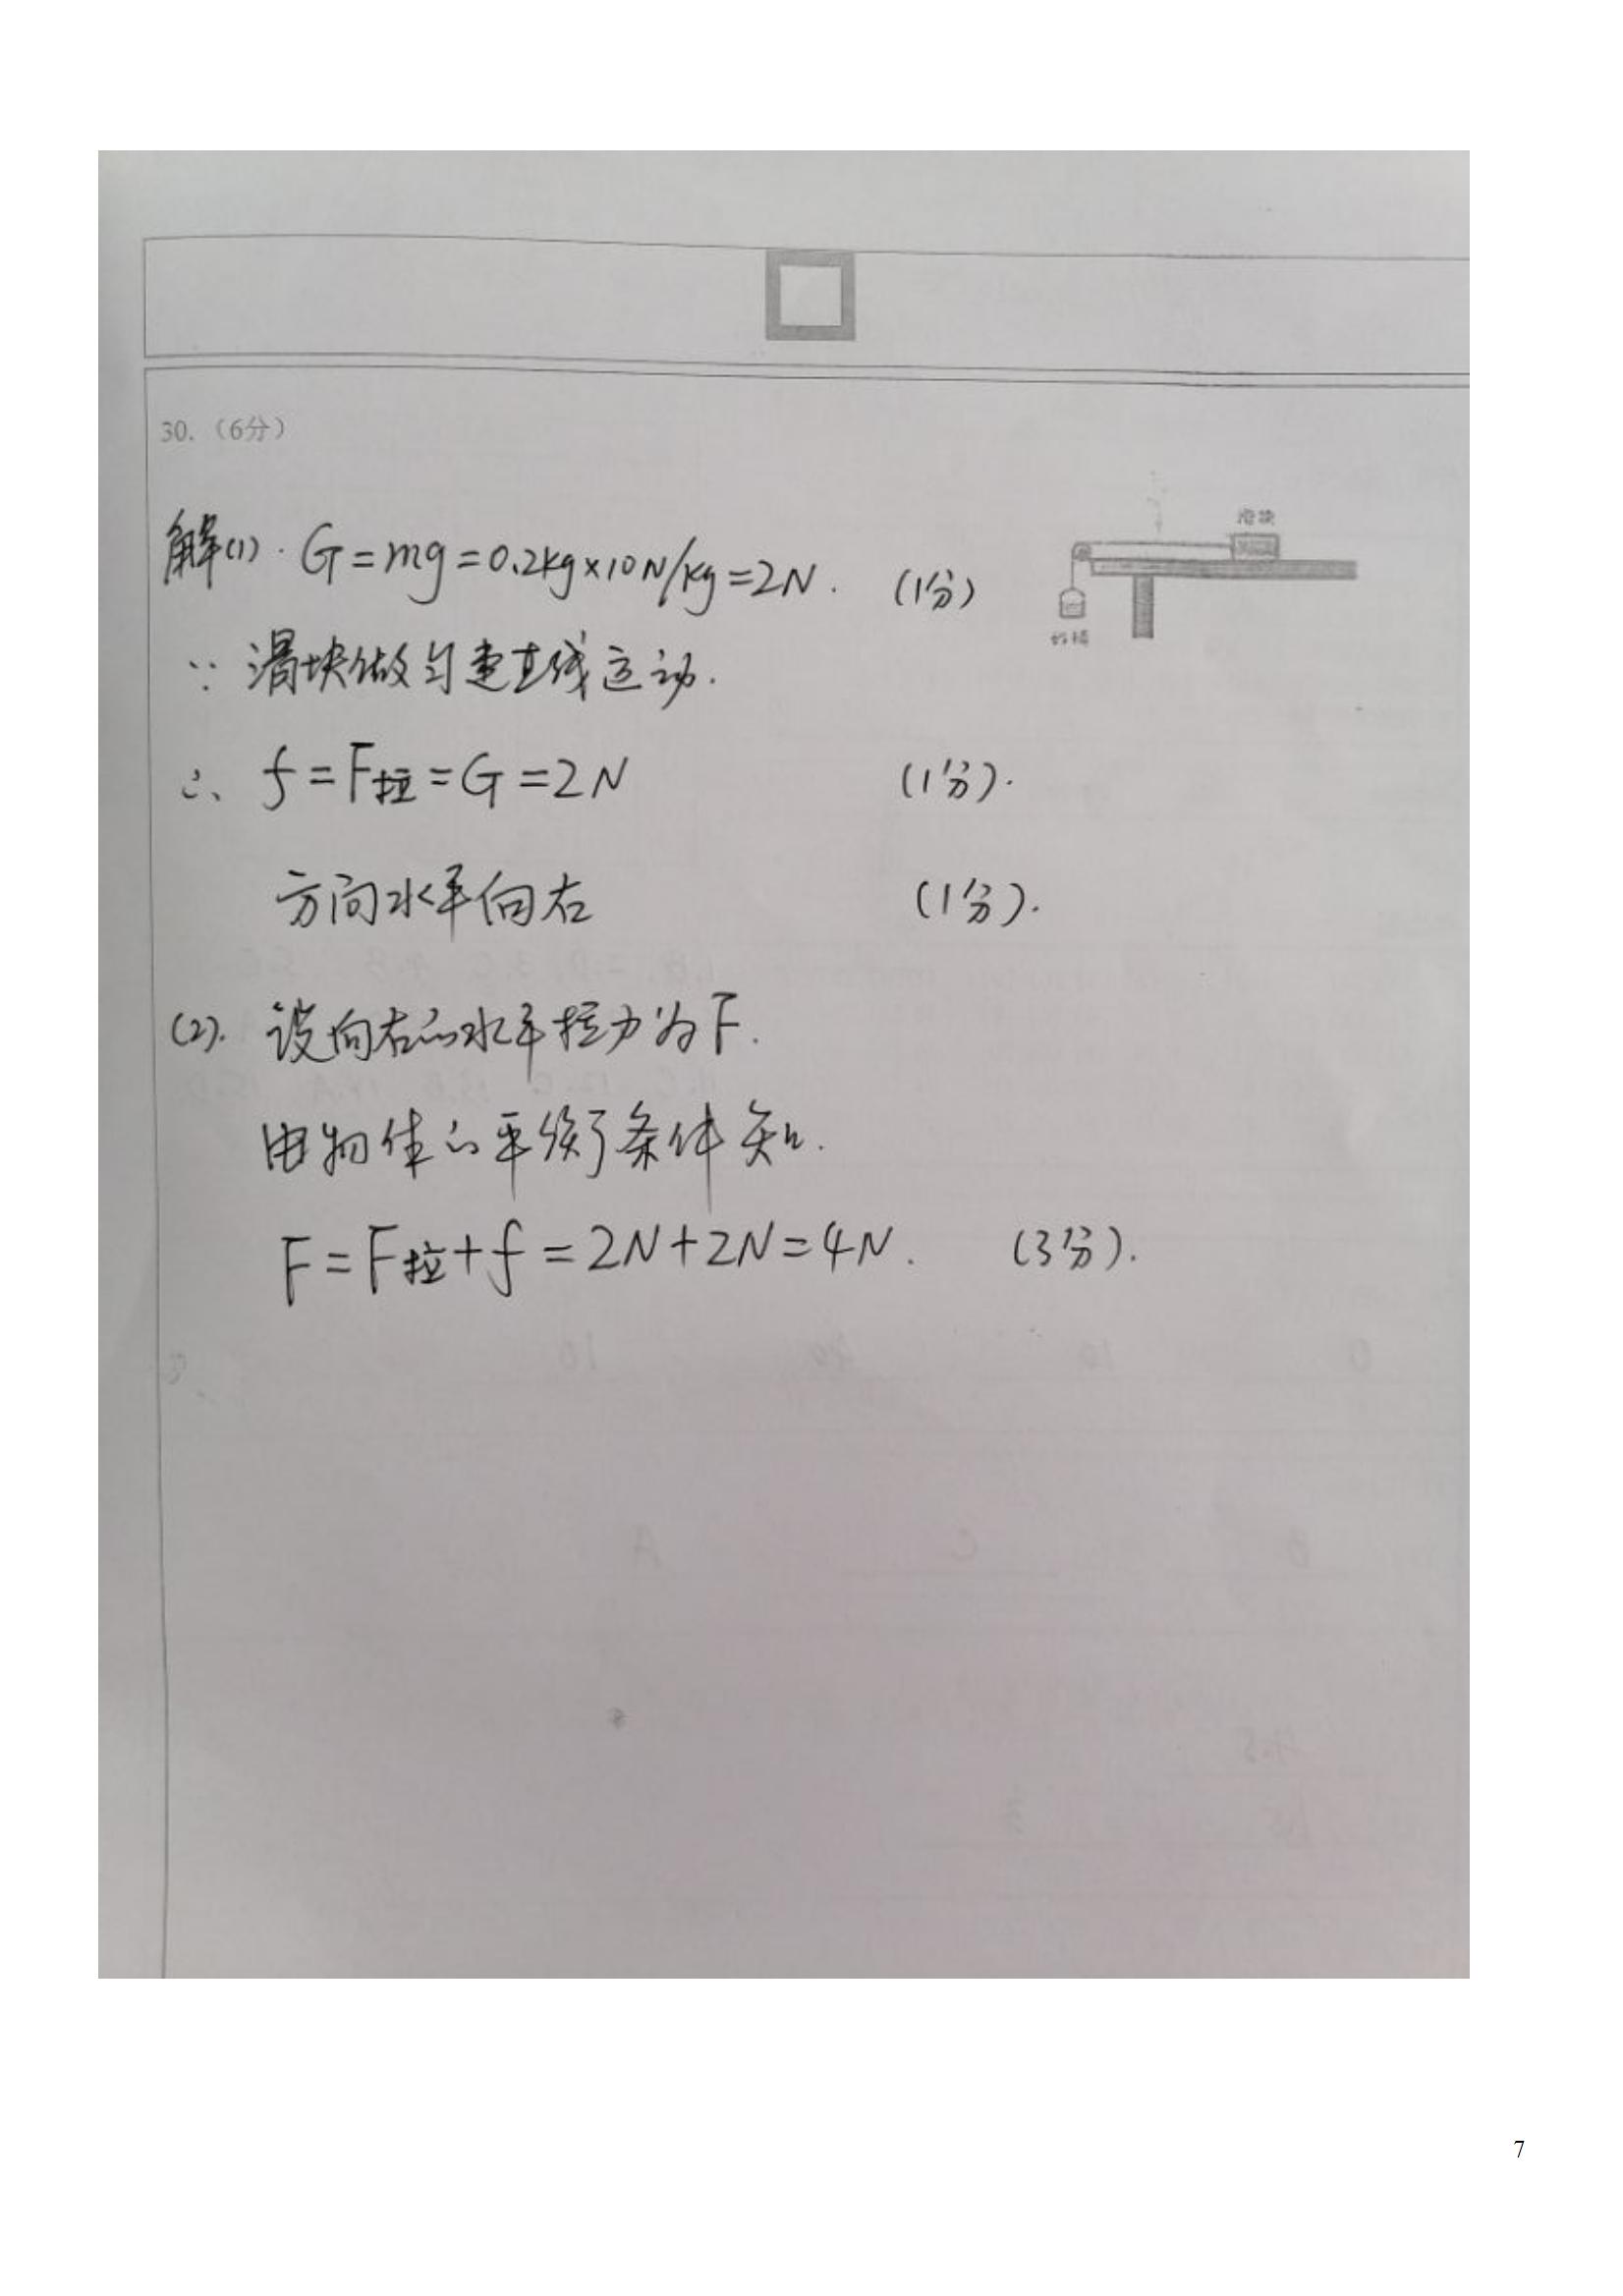 30.（6分）
解(1). G=mg=0.2kg×10N/kg=2N. (1分)
滑块
∵ 滑块做匀速直线运动.
∴ f=F拉=G=2N (1分).
方向水平向右 (1分).
(2). 设向右的水平拉力为F.
由物体的平衡条件知.
F=F拉+f=2N+2N=4N. (3分).
7